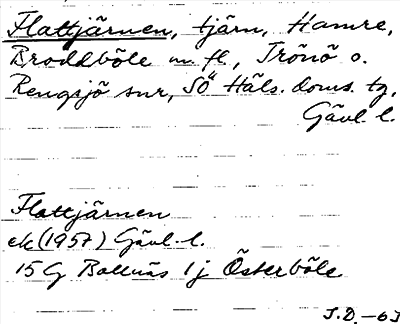 Flattjärnen, tjärn, Hamre,
Broddböle m. fl., Trönö o.
Rengsjö snr, Sö Häls. doms. tg,
Gävl. l.
Flattjärnen
ek (1957) Gävl. l.
15 G Bollnäs 1 j Österböle